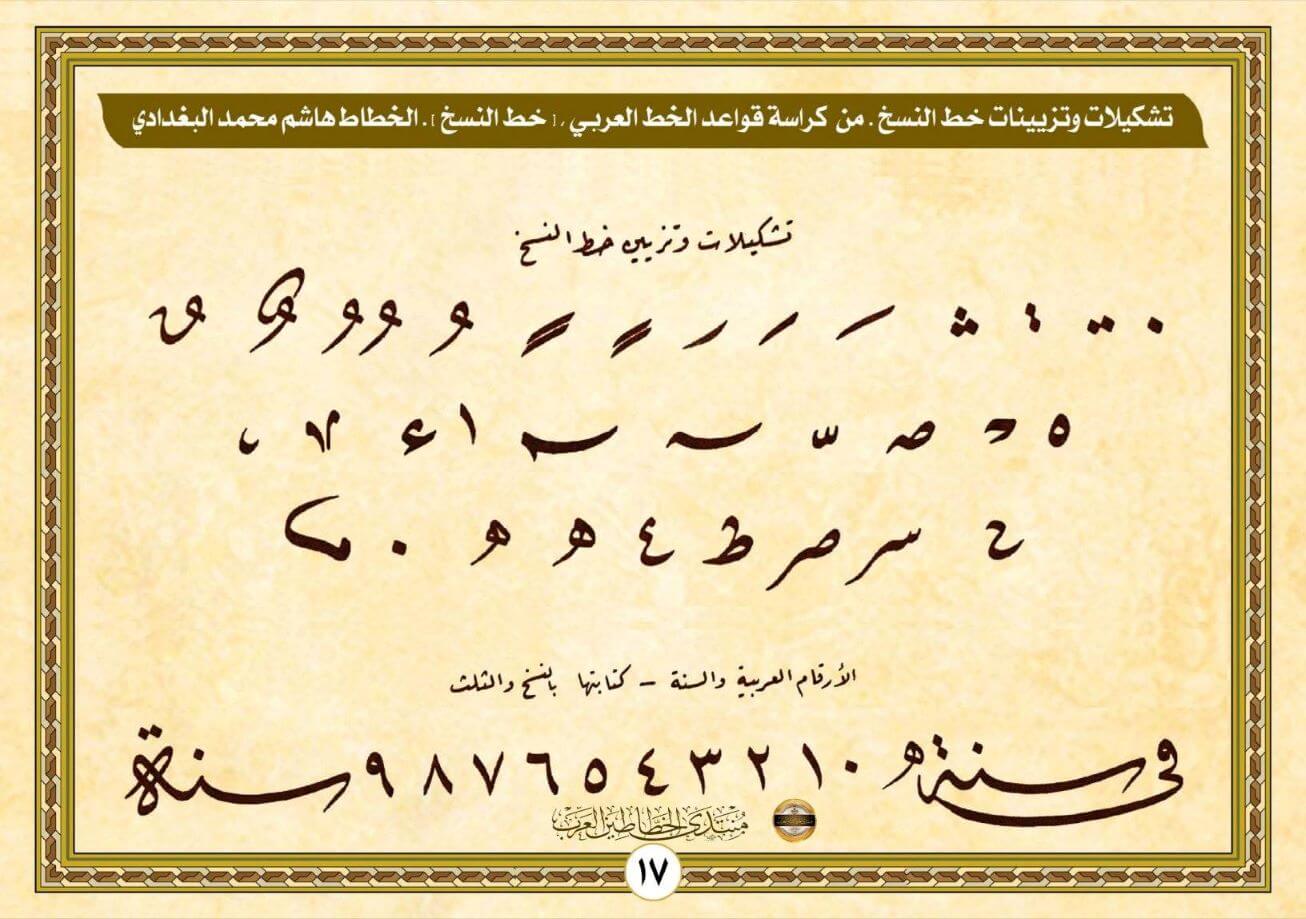 تشكيلات وتزيينات خط النسخ . من كراسة قواعد الخط العربي ،[ خط النسخ ]. الخطاط هاشم محمد البغدادي
تشكيلات وتزيين خط النسخ
ح سر صر ط ع ه ه
الأرقام العربية والسنة – كتابتها بالنسخ والثلث
في سنة ه ٠ ١ ٢ ٣ ٤ ٥ ٦ ٧ ٨ ٩ سنة
منتدى الخطاطين العرب
١٧